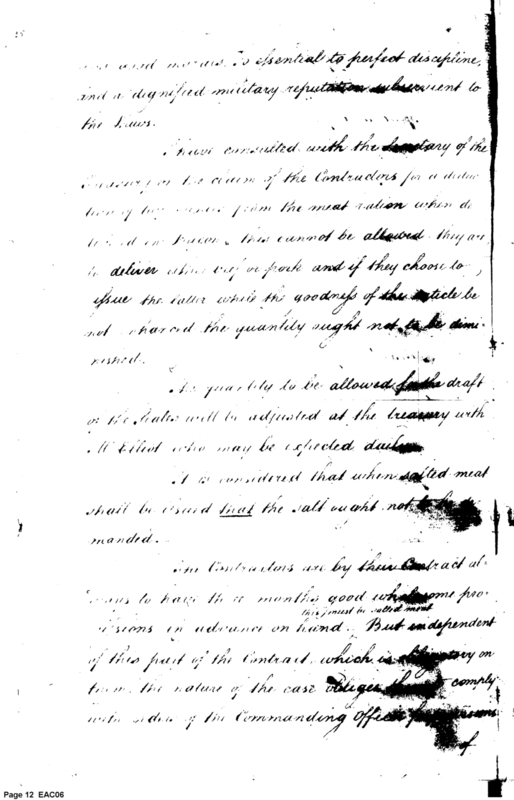 and good morals, is essential to perfect discipline,
and a dignified military reputation subservient to
the Laws.
I have consulted with the Secretary of the
Treasury on the claim of the Contractors for a deduc
tion of two ounces from the meat ration when de
in Bacon, this cannot be allowed. they are
to deliver either beef or pork and if they choose to
issue the latter while the goodness of the article be
not enhanced the quantity ought not to be dimi-
nished.
The quantity to be allowed for the draft
of the scales will be adjusted at the treasury with
Mr Elliot who may be expected daily
It is considered that when salted meat
shall be issued that the salt ought not to be de
manded.
The Contractors are by their Contract al-
ways to have three months good wholesome pro-
this must be salted meat
visions in advance on hand. But independent
of this part of the Contract, which is obligatory on
them, the nature of the case obliges them to comply
with orders of the Commanding Officer for
of
Page 12 EAC06